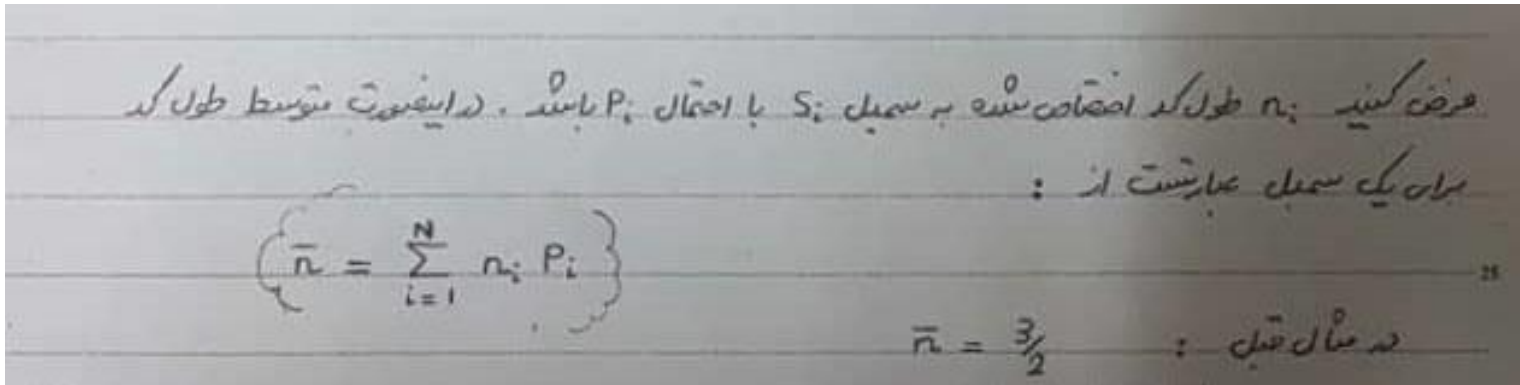 فرض کنید nᵢ طول کد اختصاص شده به سمبل Sᵢ با احتمال Pᵢ باشد . در اینصورت متوسط طول کد
برای یک سمبل عبارتست از :
n̄ = ∑_{i=1}^{N} nᵢ Pᵢ
25
در مثال قبل : n̄ = 3/2